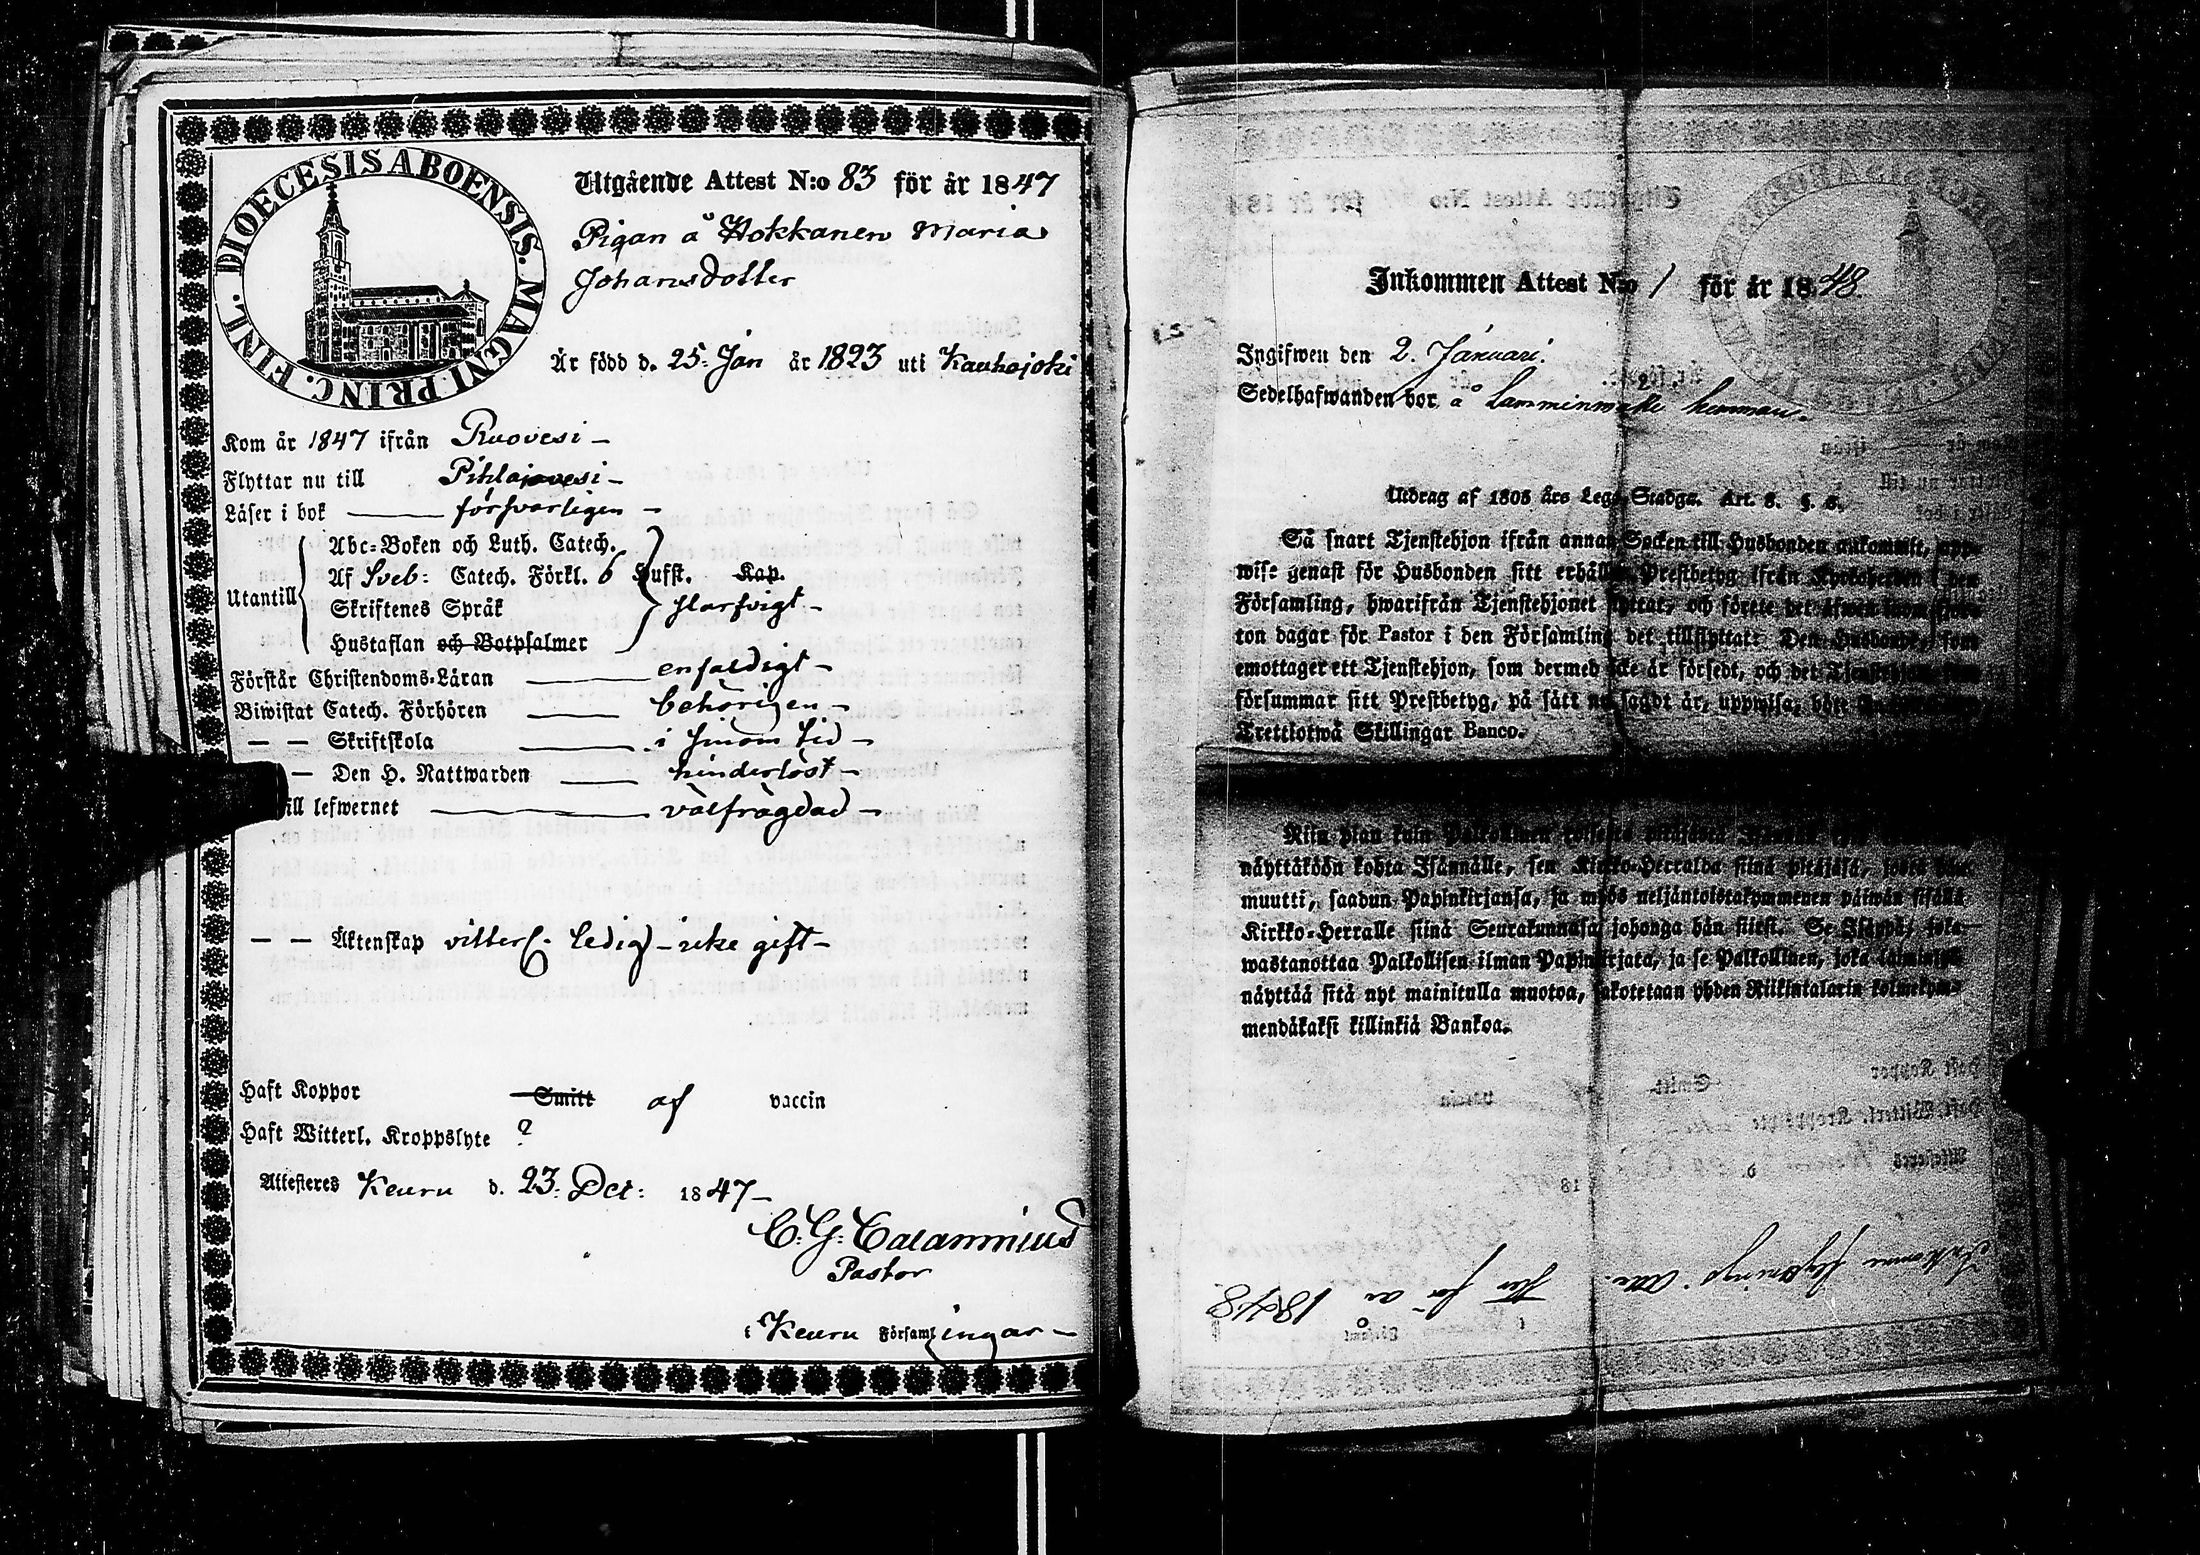 DIOECESIS ABOENSIS. MAGNI PRINC. FINL.
Utgående Attest N:o 83 för år 1847
Pigan å Hokkanen Maria
Johansdotter
Är född d. 25: Jan år 1823 uti Kauhajoki
Kom år 1847 ifrån Ruovesi –
Flyttar nu till Pihlajavesi –
Läser i bok försvarligen –
Utantill
Abc-Boken och Luth. Catech.
Af Sveb: Catech. Förkl. 6 Hufst. Kap.
Skriftenes Språk
Hustaflan och Botpsalmer
Förstår Christendoms-Läran enfaldigt –
Biwistat Catech. Förhören behörigen –
– – Skriftskola i sinom tid –
– Den H. Nattwarden hinderlöst –
till lefwernet välfrägdad –
– – Äktenskap vitterl. ledig – icke gift –
Haft Koppor Smitt af vaccin
Haft Witterl. Kroppslyte ?
Attesteres Keuru d. 23: Dec: 1847 –
C: G: Calamnius
Pastor
i Keuru Församlingar –
Inkommen Attest N:o 1 för år 1848.
Ingifwen den 2. Januari.
Sedelhafwanden bor å hemman.
Utdrag af 1805 års Lego-Stadga. Art. 3. §. 8.
Så snart Tjenstehjon ifrån annan Socken till Husbonden ankommit, upp-
wise genast för Husbonden sitt erhållna Prestbetyg ifrån Kyrkoherden i den
Församling, hwarifrån Tjenstehjonet flyttat, och förete det äfwen inom fjor-
ton dagar för Pastor i den Församling det tillflyttat. Den Husbonde, som
emottager ett Tjenstehjon, som dermed icke är försedt, och det Tjenstehjon, som
försummar sitt Prestbetyg, på sätt nu sagdt är, uppwisa, böte
Trettiotwå Skillingar Banco.
Niin pian kuin Palkollinen
näyttäköön kohta Isännälle, sen Kirkko-Herralda siinä pitäjäsä, josta hän
muutti, saadun Papinkirjansa, ja myös neljäntoistakymmenen päiwän sisällä
Kirkko-Herralle siinä Seurakunnasa johonga hän siirst. Se Isändä, joka
wastanottaa Palkollisen ilman Papinkirjata, ja se Palkollinen, joka laiminlyö
näyttää sitä nyt mainitulla muotoa, sakotetaan yhden Riikintalarin kolmekym-
mendäkaksi killinkiä Bankoa.
Inkomne flyttnings Atte-
ster för år 1848